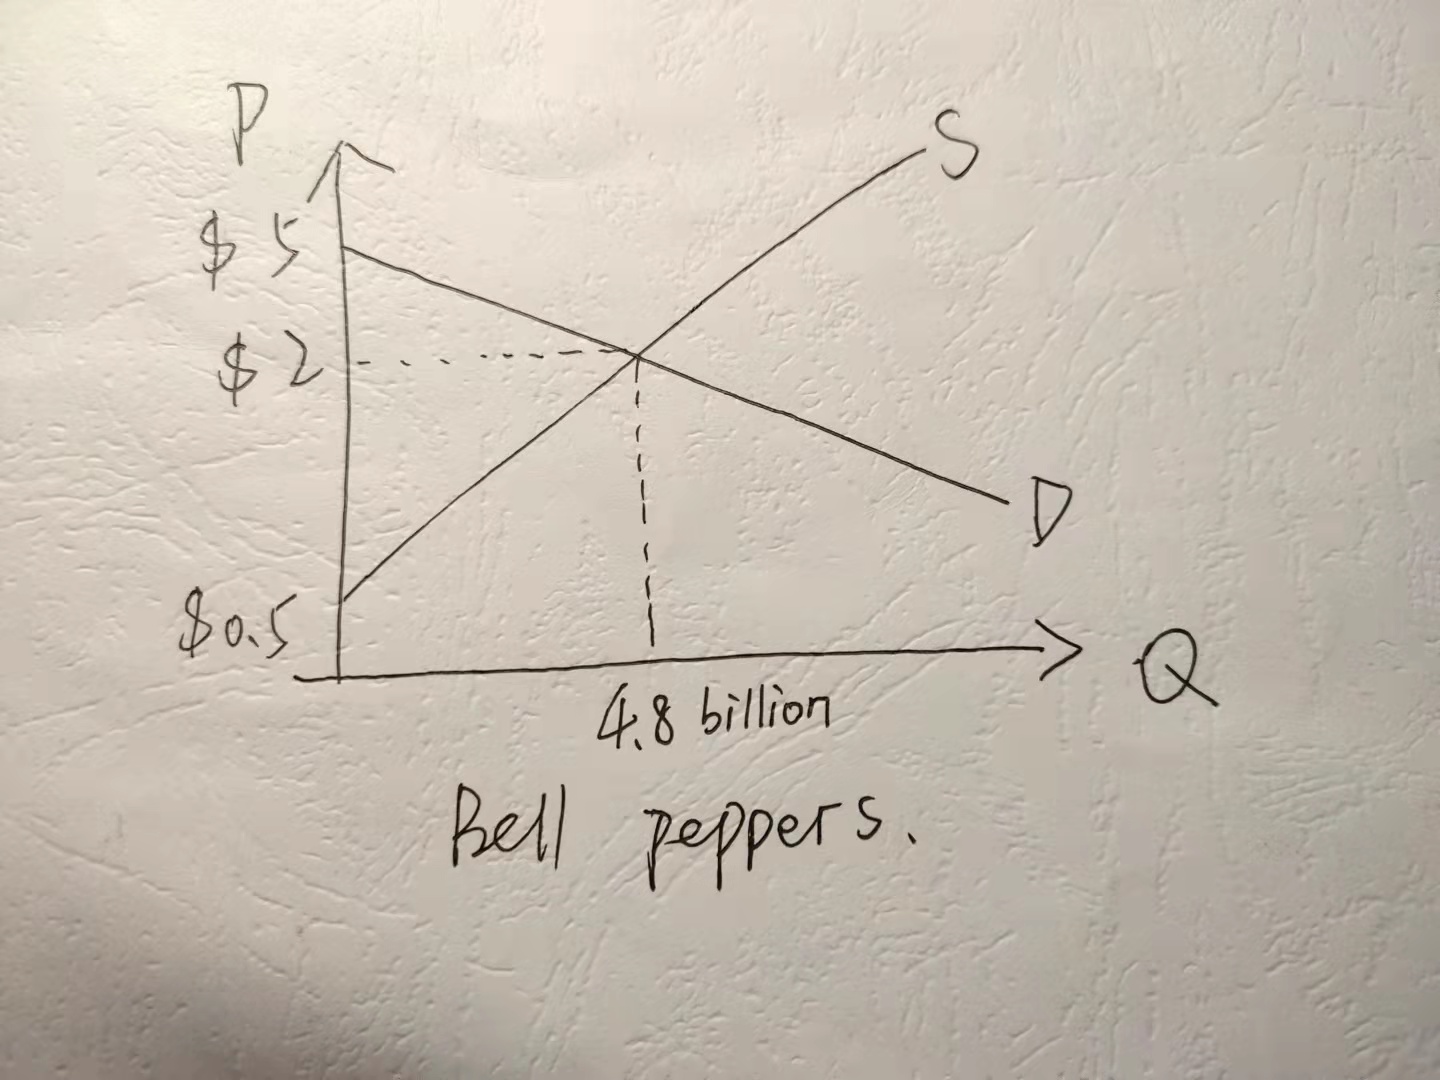 P
S
$ 5
$ 2
D
$0.5
Q
4.8 billion
Bell peppers.